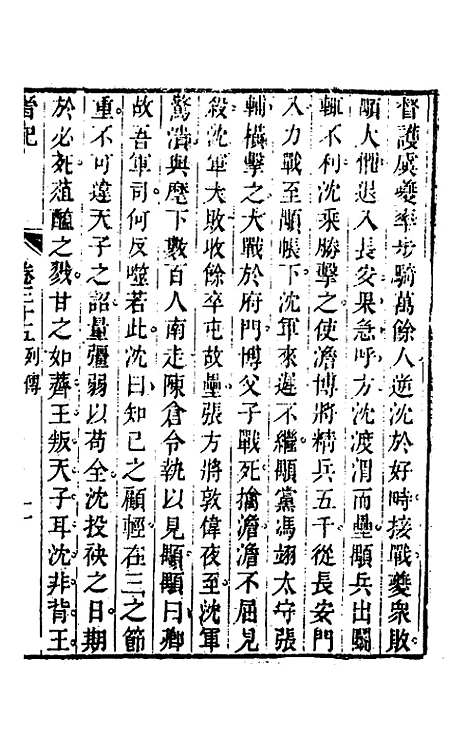 督護虞夔率步騎萬餘人逆沈於好時接戰夔衆敗
顒大懼退入長安果急呼方沈渡渭而壘顒兵出鬭
輒不利沈乘勝擊之使澹博將精兵五千從長安門
入力戰至顒帳下沈軍來遲不繼顒黨馮翊太守張
輔橫擊之大戰於府門博父子戰死擒澹澹不屈見
殺沈軍大敗收餘卒屯故壘張方將敦偉夜至沈軍
驚潰與麾下數百人南走陳倉令執以見顒顒曰卿
故吾軍司何反噬若此沈曰知己之顧輕在三之節
重不可違天子之詔量彊弱以苟全沈投袂之日期
於必死菹醢之戮甘之如薺王叛天子耳沈非背王
晉記
卷三十五列傳